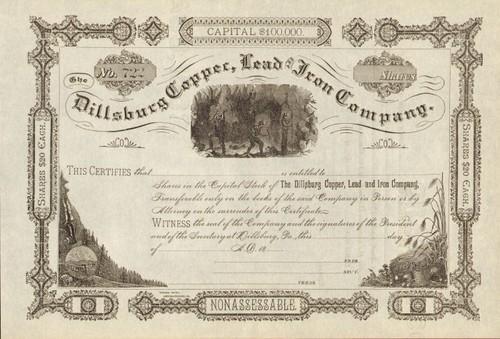 CAPITAL $100,000.
No. 722
Shares
The Dillsburg Copper, Lead and Iron Company.
SHARES $20 EACH.
SHARES $20 EACH.
Co
Co
THIS CERTIFIES that is entitled to
Shares in the Capital Stock of The Dillsburg Copper, Lead and Iron Company,
Transferable only on the books of the said Company in Person or by
Attorney on the surrender of this Certificate.
WITNESS the seal of the Company and the signatures of the President
and of the Secretary at Dillsburg, Pa., this day
of A.D. 18
PRES.
SEC'T.
TRES.
NONASSESSABLE